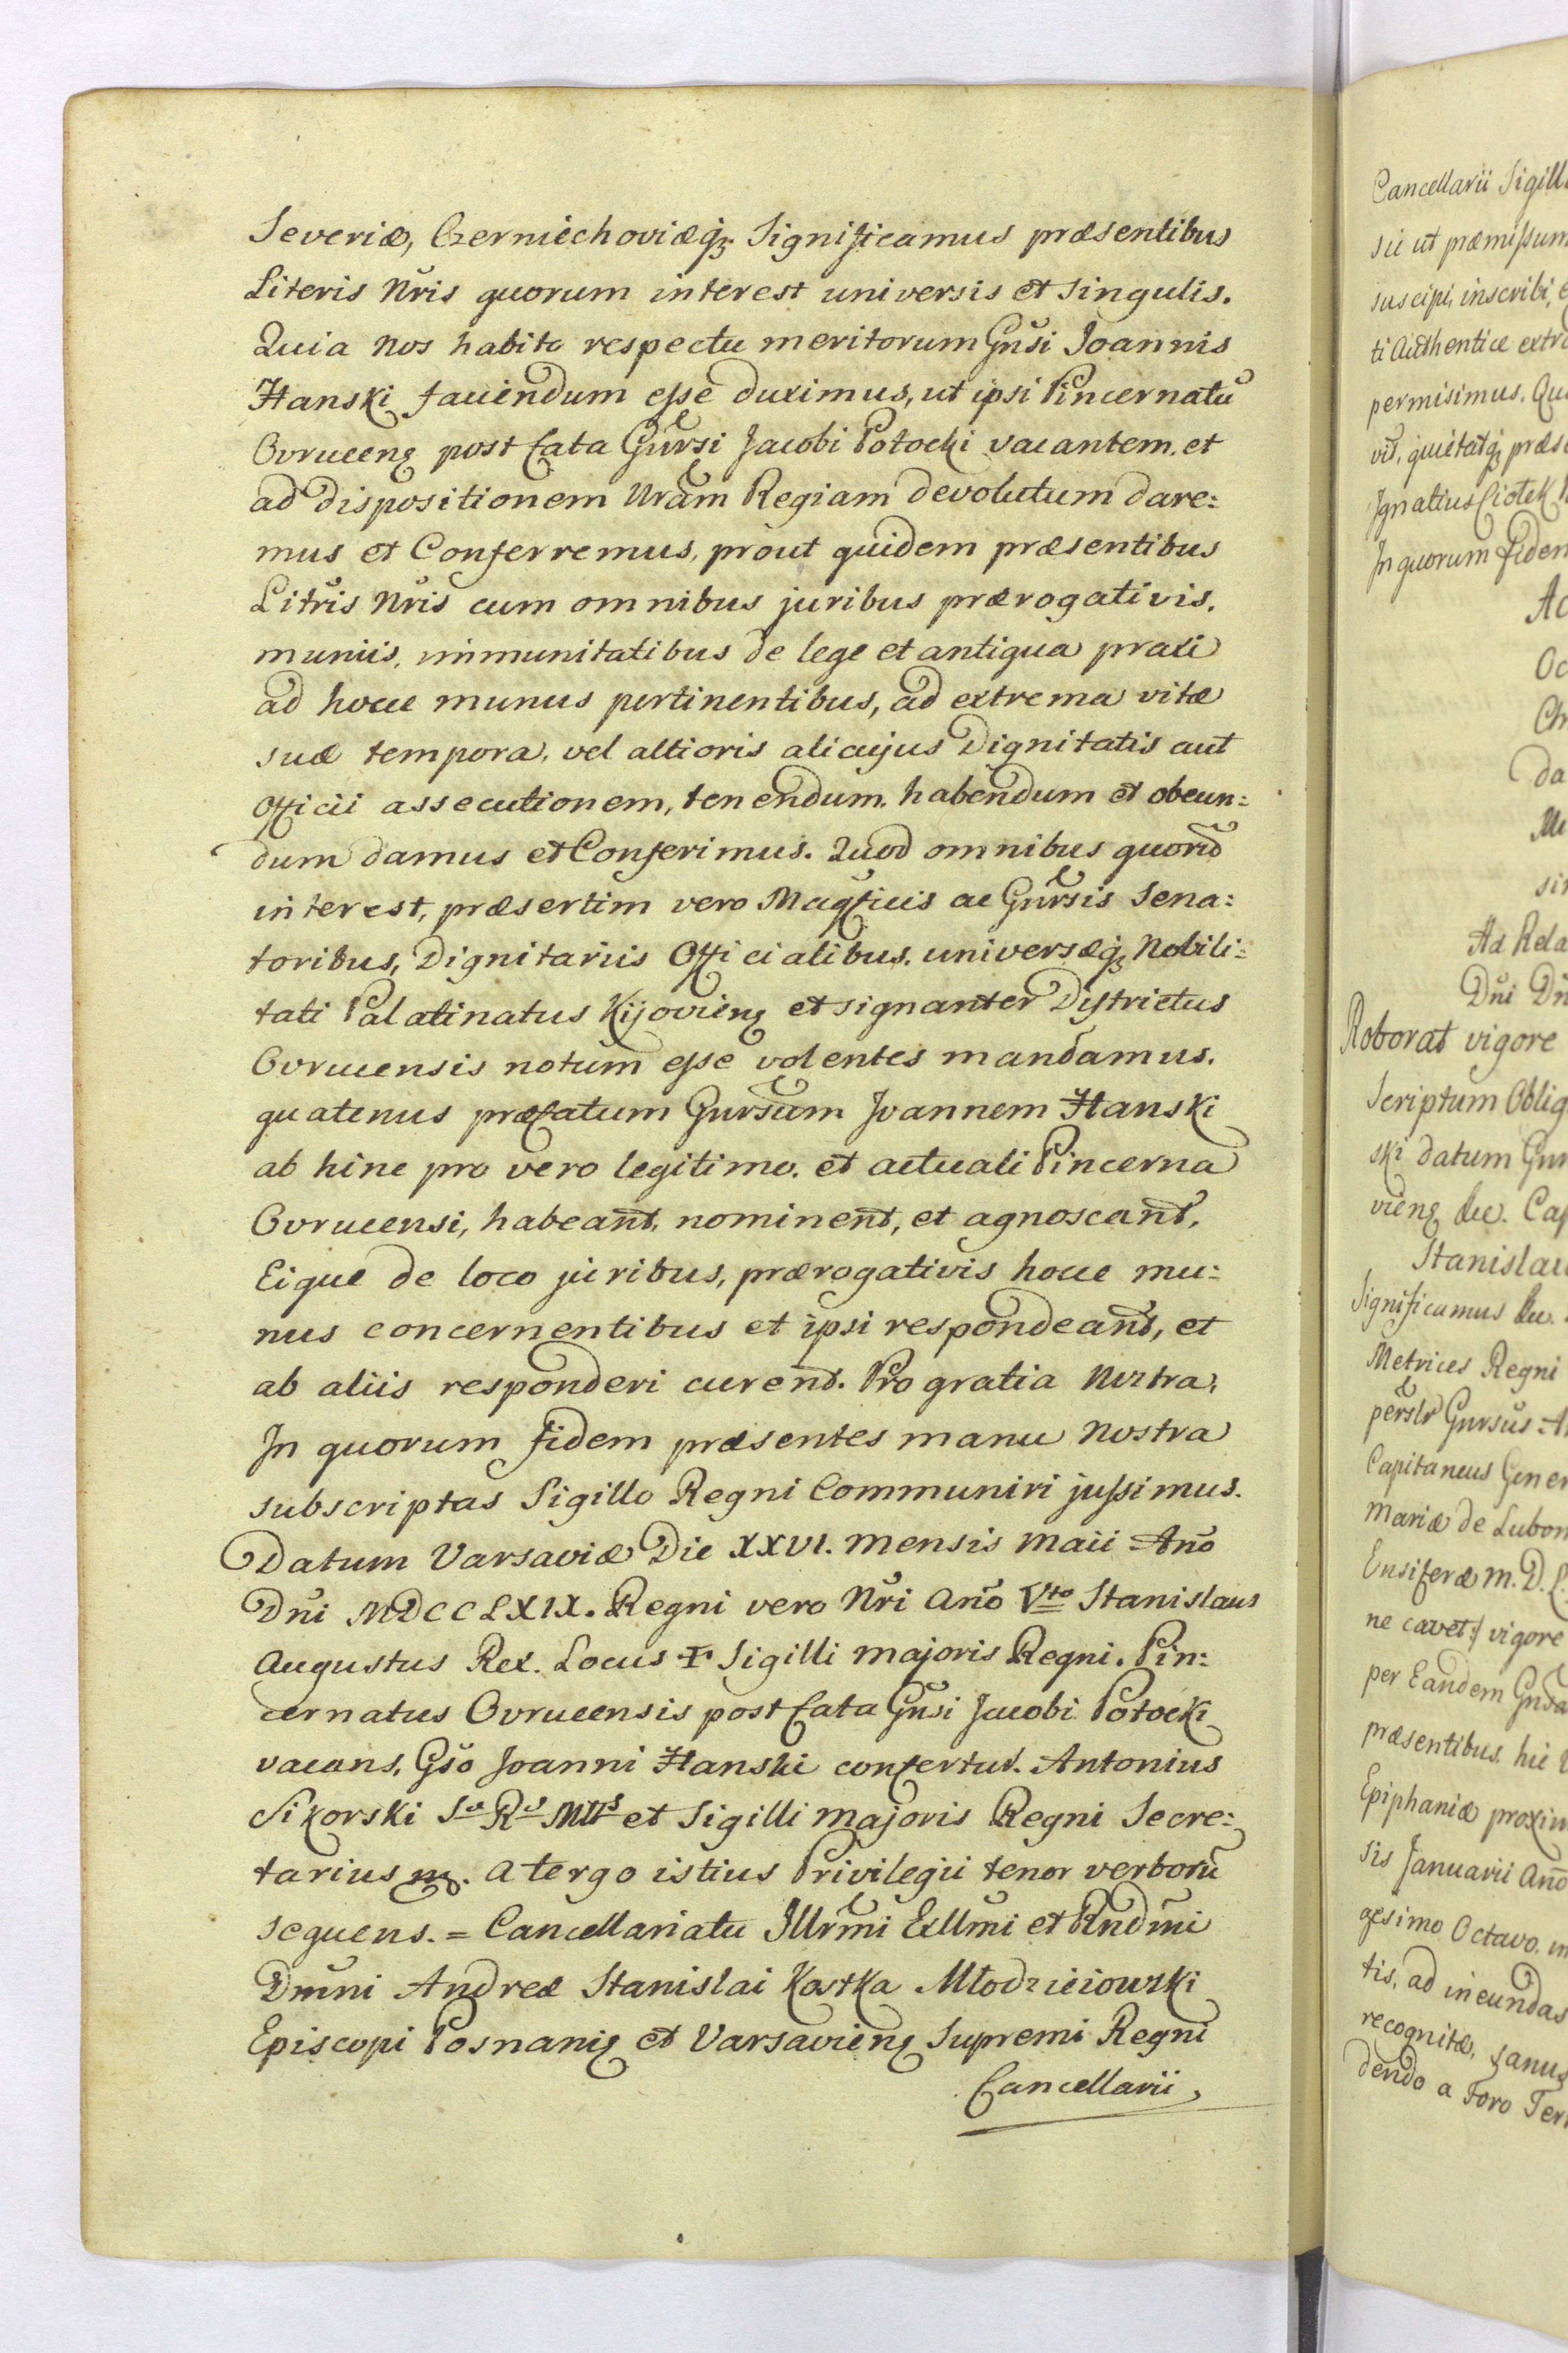 Severiæ, Czerniechoviæq̃ꝫ Significamus præsentibus
Literis Nr̃is quorum interest universis et singulis.
Quia Nos habito respectu meritorum Gñsi Joannis
Hanski faciendum esse duximus, ut ipsi Pincernatũ
Ovruceñ post fata Gñrsi Jacobi Potocki vacantem. et
ad dispositionem Nrãm Regiam devolutum dare=
mus et Conferremus, prout quidem præsentibus
Litr̃is Nr̃is cum omnibus juribus prærogativis,
muniis, immunitatibus de lege et antiqua praxi
ad hocce munus pertinentibus, ad extrema vitæ
suæ tempora, vel altioris alicujus Dignitatis aut
Officii assecutionem, tenendum. habendum et obeun=
dum damus et Conferimus. Quod omnibus quorũ
interest, præsertim vero Magficis ac Gñrsis Sena=
toribus, Dignitariis Officialibus. universæq̃ꝫ Nobili=
tati Palatinatus Kijovieñ et signanter Districtus
Ovrucensis notum esse volentes mandamus.
quatenus præfatum Gñrsum Joannem Hanski
ab hinc pro vero legitimo. et actuali Pincerna
Ovrucensi, habeañt, nomineñt, et agnoscañt,
Eique de loco juribus, prærogativis hocce mu=
nus concernentibus et ipsi respondeañt, et
ab aliis responderi cureñt. Pro gratia Nostra,
In quorum fidem præsentes manu Nostra
subscriptas Sigillo Regni Communiri jussimus.
Datum Varsaviæ Die XXVI. Mensis Maii Añó
Dñi MDCCLXIX. Regni vero Nr̃i Año Vto Stanislaus
Augustus Rex. Locus ✝ Sigilli majoris Regni. Pin=
cernatus Ovrucensis post fata Gñsi Jacobi Potocki
vacans, Gs̃o Joanni Hanski confertur. Antonius
Sikorski Sæ Ræ Mttis et Sigilli majoris Regni Secre=
tarius mp. A tergo istius Privilegii tenor verborũ
sequens. = Cancellariatu Illr̃mi Exllm̃i et Rndm̃i
Dm̃ni Andreæ Stanislai Kostka Młodzieiowski
Episcopi Posnanieñ et Varsavieñ Supremi Regni
Cancellarii
Cancellarii Sigill
sic ut præmissum
suscipi, inscribi,
ti Authentice extr
permisimus. Qu
vit, quietatq̃ꝫ præs
Ignatius Ciołek
In quorum fidem
Ac
Oc
Ch
da
Me
sin
Ad Rela
Dñi Dñ
Roborat vigore
Scriptum Oblig
ski datum Gnr
vieñ &c. Cap
Stanislau
Significamus &c.
Metrices Regni
per̃slr Gnrsũs A
Capitaneus Gener
Mariæ de Lubom
Ensiferæ M. D. L.
ne cavet:/ vigore
per Eandem Gñsa
præsentibus. hic
Epiphaniæ proxim
sis Januarii Año
gesimo Octavo. in
tis, ad ineundas
recognitæ, sanus
dendo a Foro Ter